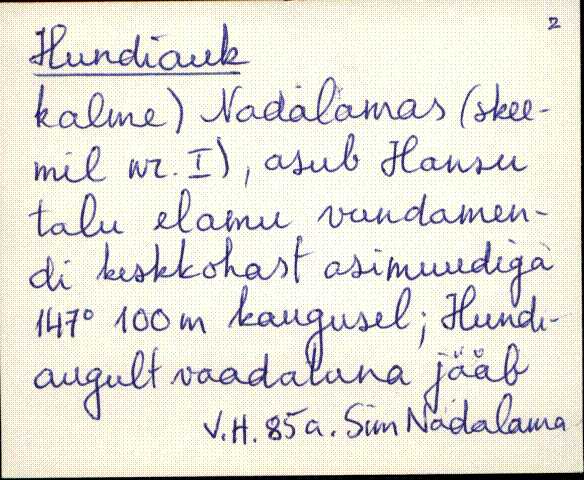 2
Hundiauk
kalme) Nadalamas (skee-
mil nr. I), asub Hansu
talu elamu vundamen-
di keskkohast asimuudiga
147° 100 m kaugusel; Hundi-
augult vaadatuna jääb
V.H. 85a. Sim Nadalama